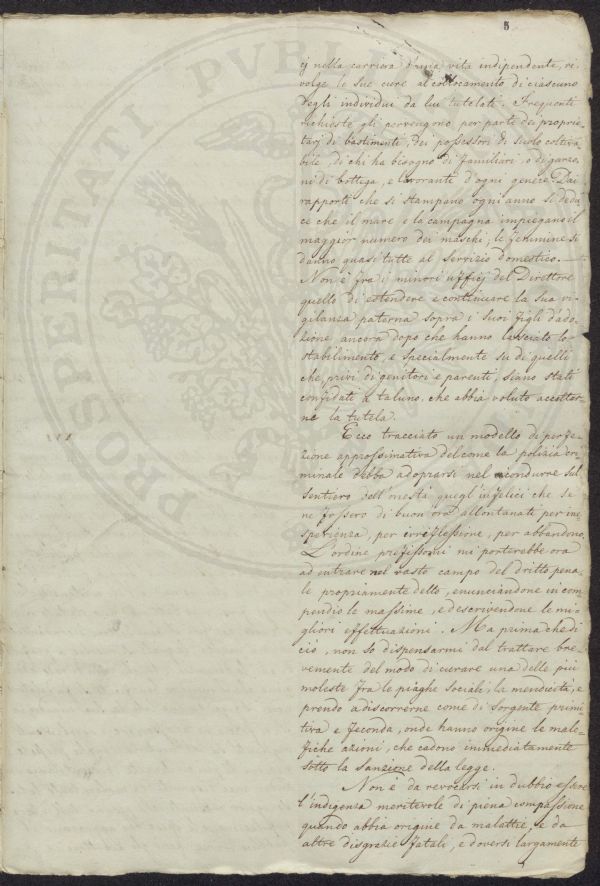 5
ej nella carriera d'una vita indipendente, ri-
volge le sue cure al collocamento di ciascuno
degli individui da lui tutelati. Frequenti
richieste gli pervengono per parte dei proprie-
tarj di bastimenti, dei possessori di suolo coltiva-
bile, di chi ha bisogno di famigliari, o di garzo-
ni di bottega, e lavorante d'ogni genere. Dai
rapporti che si stampano ogni anno si dedu-
ce che il mare e la campagna impiegano il
maggior numero dei maschi; le femmine si
danno quasi tutte al servizio domestico.
Non è fra i minori ufficj del Direttore
quello di estendere e continuare la sua vi-
gilanza paterna sopra i suoi figli d'ado-
zione ancora dopo che hanno lasciato lo
stabilimento, e specialmente su di quelli
che, privi di genitori e parenti, siano stati
confidati a taluno, che abbia voluto accettar-
ne la tutela.
Ecco tracciato un modello di perfe-
zione approssimativa del come la polizia cri-
minale debba adoprarsi nel ricondurre sul
sentiero dell'onestà quegl'infelici che se
ne fossero di buon'ora allontanati per ine-
sperienza, per irriflessione, per abbandono.
L'ordine prefissomi mi porterebbe ora
ad entrare nel vasto campo del dritto pena-
le propriamente detto, enunciandone in com-
pendio le massime, e descrivendone le mi-
gliori effettuazioni. Ma prima che di
ciò, non so dispensarmi dal trattare bre-
vemente del modo di curare una delle più
moleste fra le piaghe sociali, la mendicità, e
prendo a discorrerne come di sorgente primi-
tiva e feconda, onde hanno origine le male-
fiche azioni, che cadono immediatamente
sotto la sanzione della legge.
Non è da revocarsi in dubbio essere
l'indigenza meritevole di piena compassione
quando abbia origine da malattie, e da
altre disgrazie fatali, e doversi largamente
PROT
PUBLI